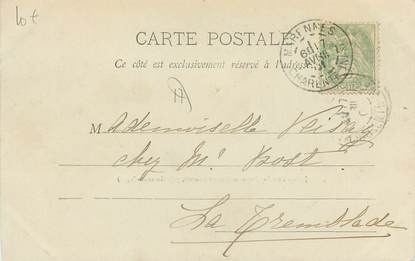 10€
CARTE POSTALE
Ce côté est exclusivement réservé à l'adresse
MARENNES
CHARENTE
Mademoiselle
chez Mr Prost
La Tremblade